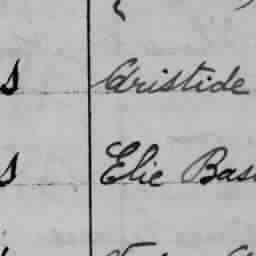 s Aristide
s Elie Bas